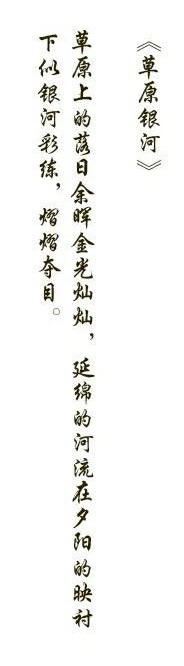 《草原银河》
草原上的落日余晖金光灿灿，延绵的河流在夕阳的映衬
下似银河彩练，熠熠夺目。